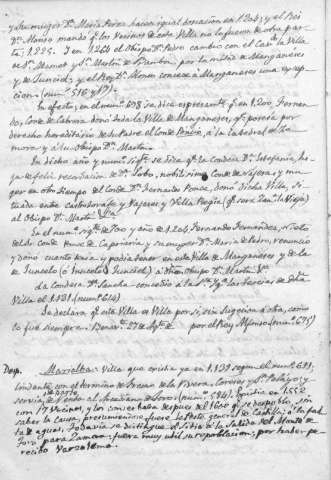 y su muger Dª María Perez hacen igual donacion en 1204; y el Rei
Dn. Alonso mandó qe. los Vecinos de esta Villa no la fuesen de otra par-
te, 1225. I en 1264 el Obispo Dn. Pedro cambio con el
de Sn. Mamet y Sn. Martin de Bamba, por la mitad de Manganeses
y de Junciel; y el Rey Dn. Alonso concede a Manganeses una
cion (num. 516 y 17).
En efecto, en el num. 698 se dice espresante. qe. en 1200, Fernan-
do, Conde de Cabrera, donó inda la Villa de Manganeses, qe. poseía por
derecho hereditario de su Padre el Conde Poncio, á la Catedral de Za-
mora, y á su Obispo Dn. Martin.
En dicho año y num. sigte. se dice qe. la Condesa Dª Estefania, hi-
ja de feliz recordacion de Dn. Lobo, nobilisimo Conde de Nagera, y mu-
ger en otro tiempo del Conde Dn. Fernando Ponce, donó dicha Villa, si-
tuada entre Castrotorafe y Tajares y Villa Regia (qe. será Zama. la Vieja)
al Obispo Dn. Martin
En el num. sigte. de 700 y año de 1206 Fernando Fernandez, nieto
del de Conde Ponce de Caprieria y su muger Dª María de Pedro, renunció
y donó cuanto tenia y podia tener en esta Villa de Manganeses y de la
de Juncelo (ó Junciel) á dicho Obispo Dn. Martin
La Condesa Dª Sancha concedio á la Sta. Iga. las tercias de dha.
Villa el 1181 (num. 614)
Se declara qe. esta Villa es Villa por si, sin sugecion á otra, como
lo fue siempre: Benavte. 27 de Agto. de por el Rey Alfonso (num. 675)
Dep. Marialba: Villa que existia ya en 1.139 segun el num. 691,
lindante con el termino de Fresno de la Rivera, Coreses y Sn. Pelayo; y
servia de Renta al Arcediano de Toro (num. 584). Existia en 1552
con 17 vecinos, y los conservaba despues del 1600 y se despobló, sin
saber la causa, presumiendose fuese la Peste general de Castilla, ó la fal-
ta de aguas. Todavia se distingue el sitio á la salida del Monte de
Toro para Zamora: fuera muy util su repoblacion, por haber pe-
recido